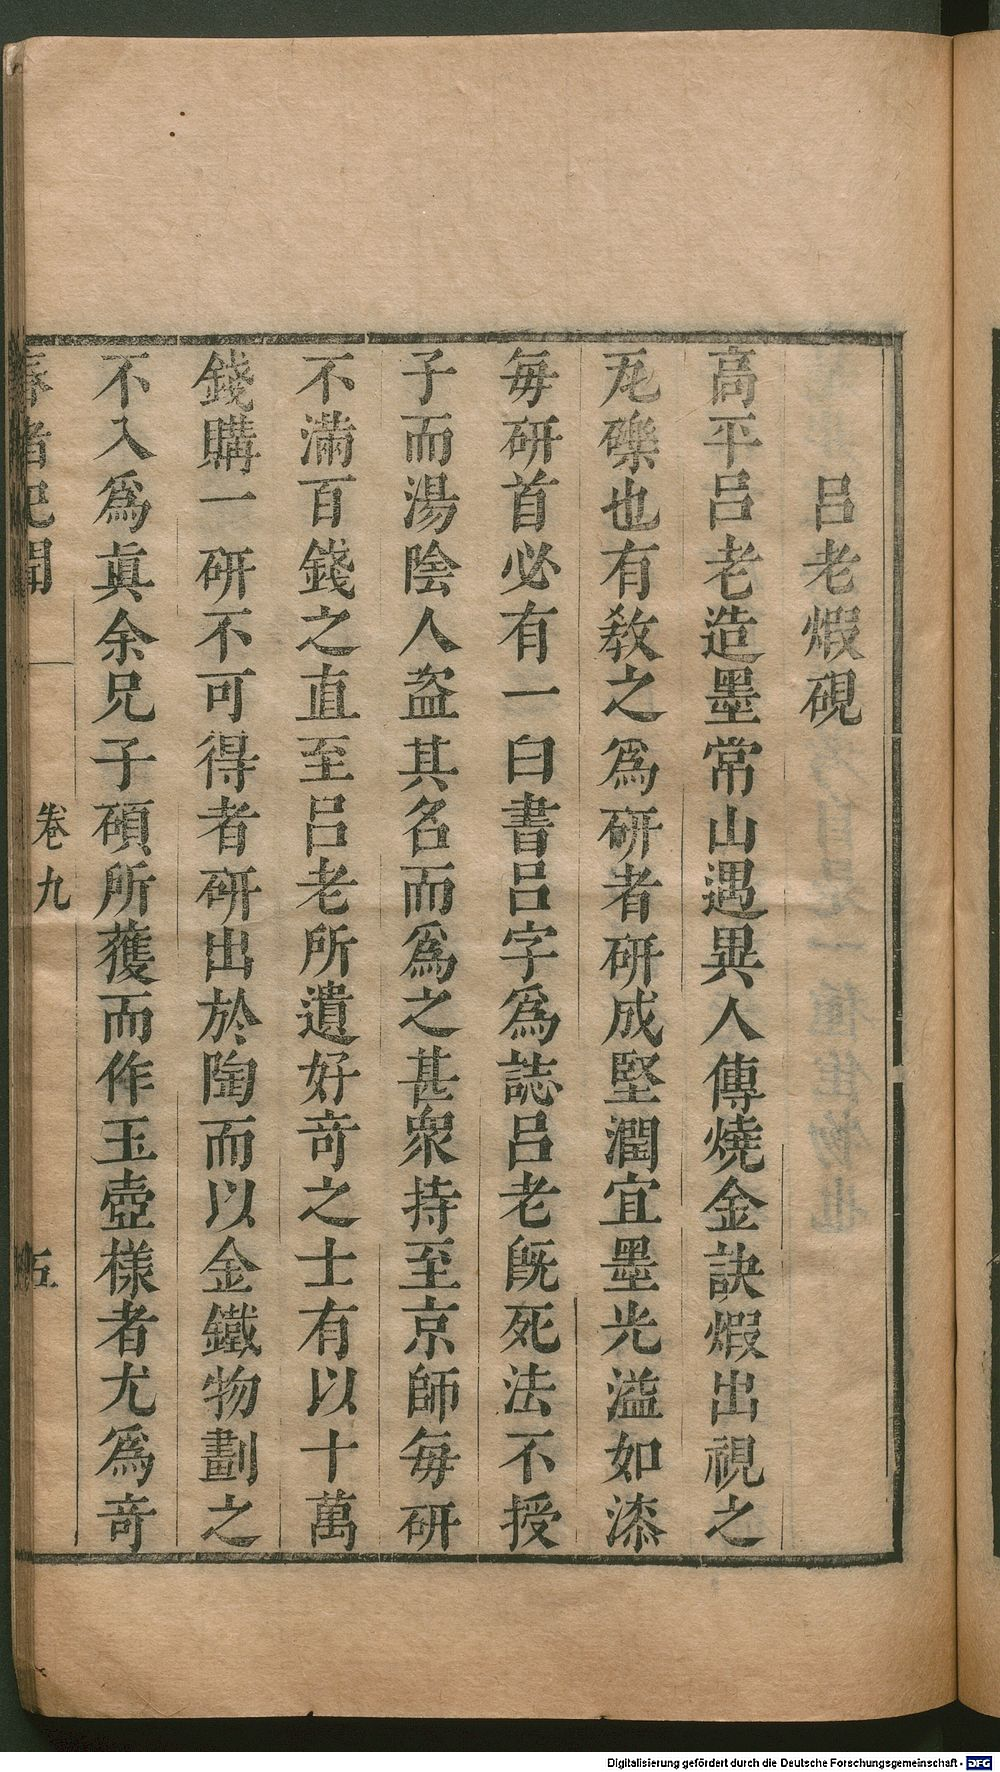 呂老煆硯
高平呂老造墨常山遇異人傳燒金訣煆出視之
瓦礫也有敎之爲研者研成堅潤宜墨光溢如漆
每研首必有一白書呂字爲誌呂老旣死法不授
子而湯陰人盜其名而爲之甚衆持至京師每研
不滿百錢之直至呂老所遺好奇之士有以十萬
錢購一研不可得者研出於陶而以金鐵物劃之
不入爲眞余兄子碩所獲而作玉壺樣者尤爲奇
春渚紀聞 卷九 五
Digitalisierung gefördert durch die Deutsche Forschungsgemeinschaft - DFG